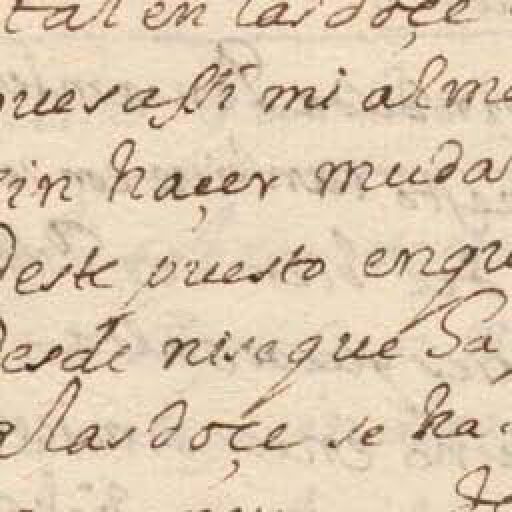 tal en las doçe
pues assi mi alm
sin haçer muda
Deste puesto enqu
Desde niseque Sa
alas doçe se ha